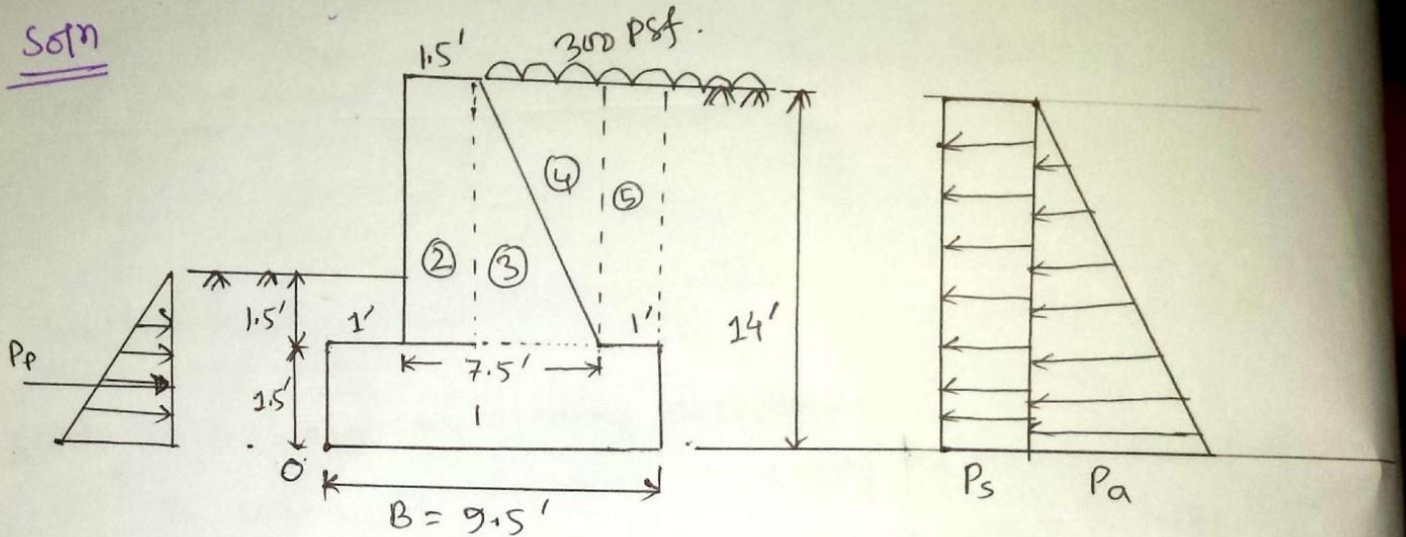 Soln
1.5'
300 psf.
④
⑤
②
③
1.5'
1'
1'
14'
7.5'
Pp
1.5'
O
B = 9.5'
Ps
Pa